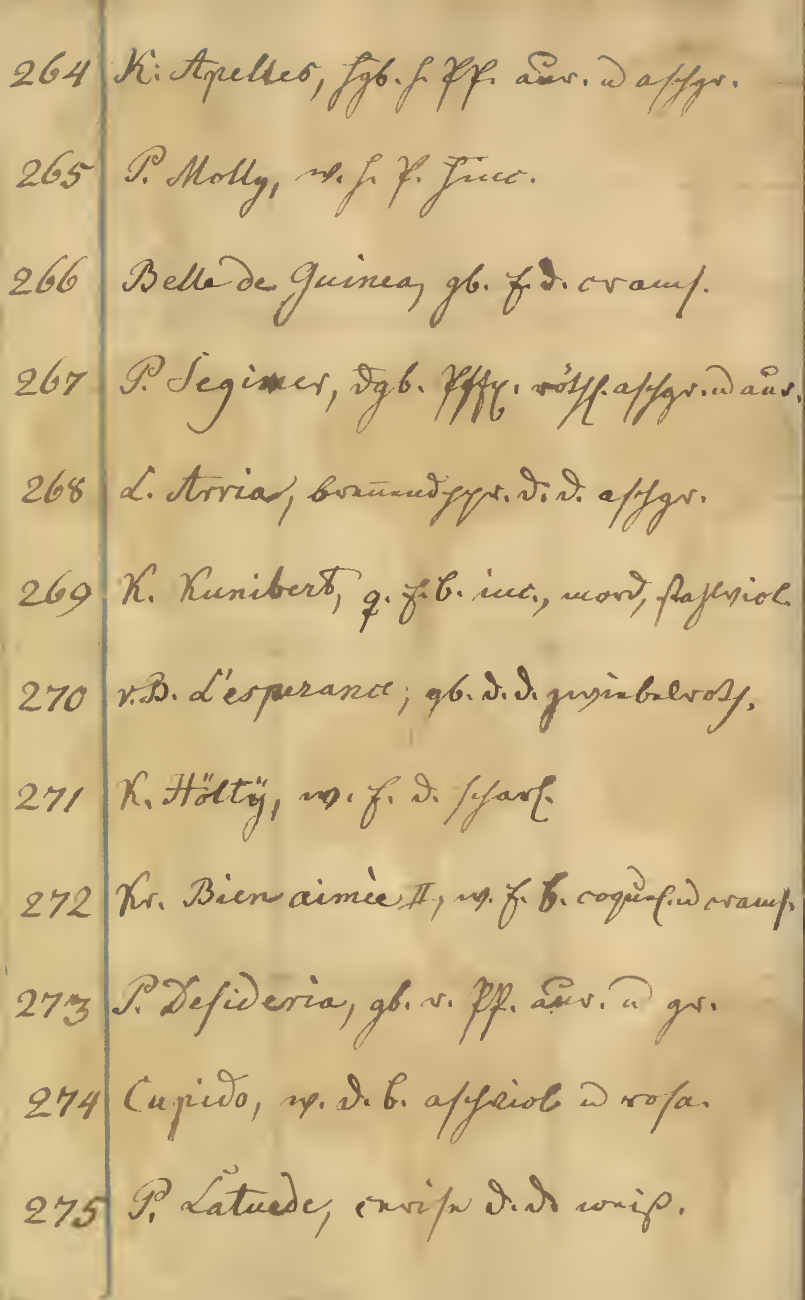 264 K. Apelles, hgb. h. PP. aur. u aschgr.
265 P. Molly, w. h. P. Hinc.
266 Belle de Guinea, gb. f. d. cramf.
267 P. Segimer, dgb. röthl. aschgr. u aur.
268 L. Arria, brennendppr. d. d. aschgr.
269 K. Kunibert, g. f. b. inc., mord, stahlviol.
270 v. B. L'esperance, gb. d. d. zwiebelroth.
271 K. Höltÿ, w. f. d. scharl.
272 Kr. Bien aimèe II, w. f. b. coquel. u cramf.
273 P. Desideria, gb. r. PP. aur. u gr.
274 Cupido, w. d. b. aschviol u rosa.
275 P. Latuede, cerise d. d. weiß.